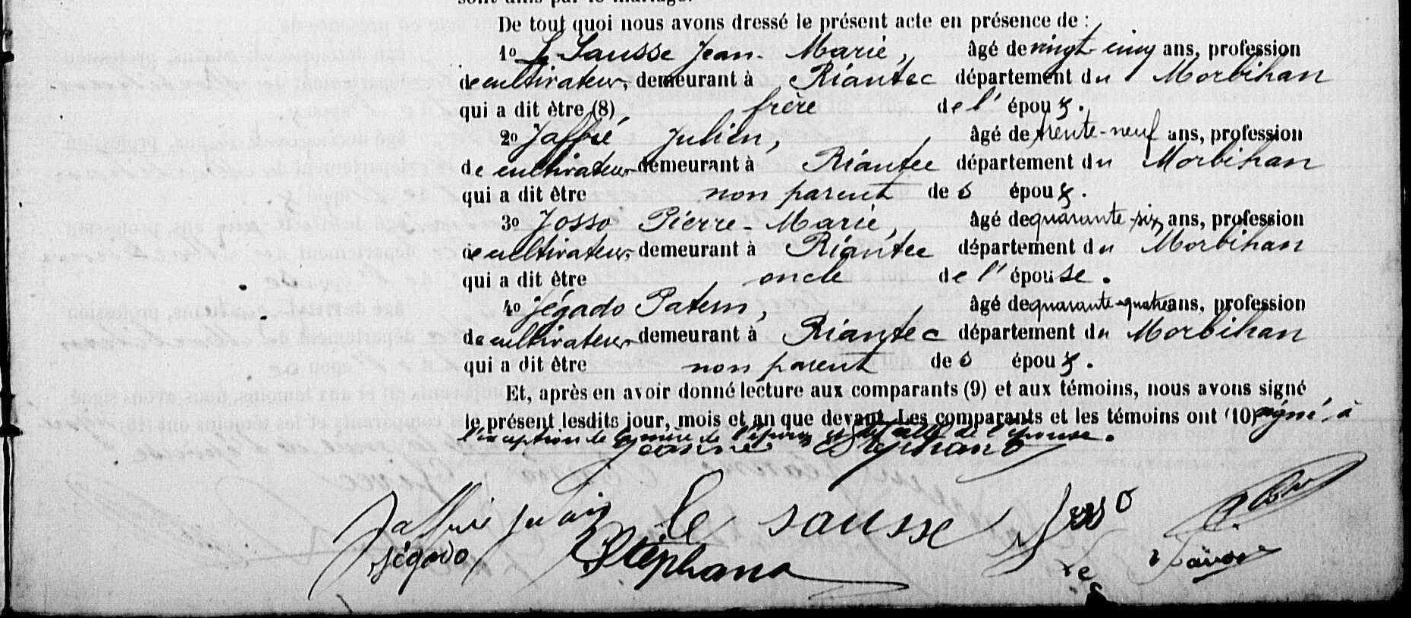 sont unis par le mariage.
De tout quoi nous avons dressé le présent acte en présence de :
1o Le Sausse Jean-Marie, âgé de vingt cinq ans, profession
de cultivateur, demeurant à Riantec département du Morbihan
qui a dit être (8) frère de l' époux.
2o Jaffré Julien, âgé de trente-neuf ans, profession
de cultivateur demeurant à Riantec département du Morbihan
qui a dit être non parent des époux.
3o Josso Pierre-Marie, âgé de quarante-six ans, profession
de cultivateur demeurant à Riantec département du Morbihan
qui a dit être oncle de l' épouse.
4o Jégado Patern, âgé de quarante-quatre ans, profession
de cultivateur demeurant à Riantec département du Morbihan
qui a dit être non parent des époux.
Et, après en avoir donné lecture aux comparants (9) et aux témoins, nous avons signé
le présent lesdits jour, mois et an que devant. Les comparants et les témoins ont (10) signé, à
l'exception de la mère de l'époux et de celle de l'épouse.
Jeanne Stéphano
Jaffré Julien le sausse Josso
Jégado Stéphano Le